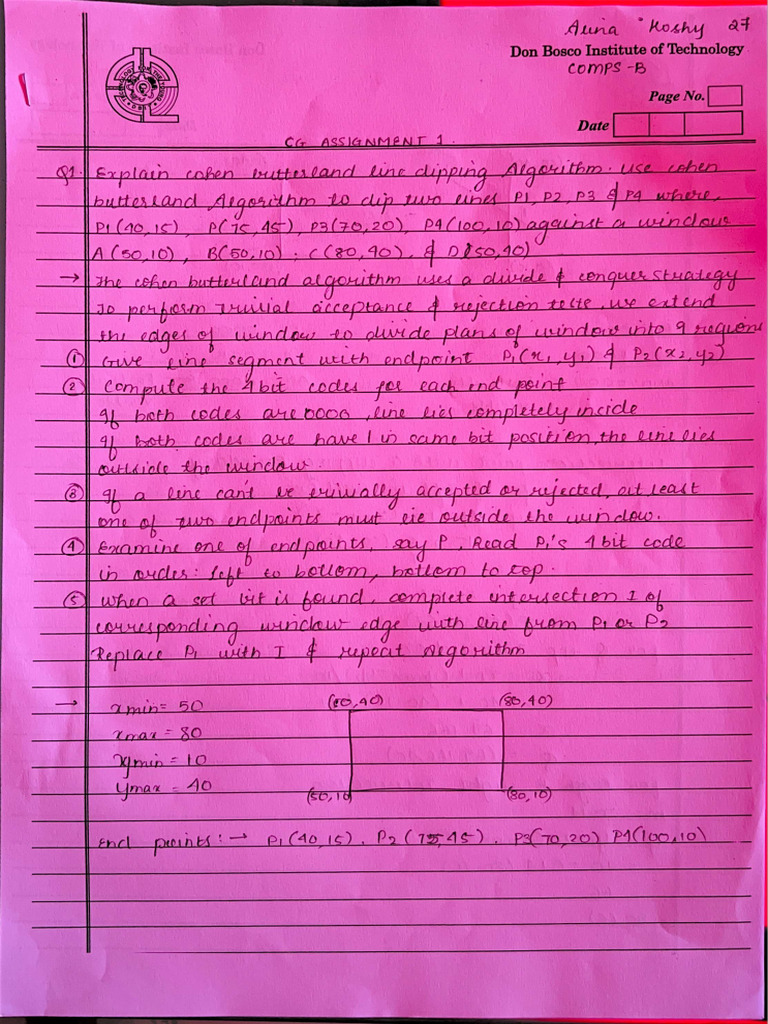 Alina Koshy 27
Don Bosco Institute of Technology
COMPS-B
Page No.
Date
CG ASSIGNMENT 1.
Q1. Explain cohen butterland line clipping Algorithm. Use cohen
butterland Algorithm to clip two lines P1, P2, P3 & P4 where,
P1(40,15), P(75,45), P3(70,20), P4(100,10) against a window
A(50,10), B(50,10), C(80,40), & D(50,40)
→ The cohen butterland algorithm uses a divide & conquer strategy
To perform Trivial acceptance & rejection tests, we extend
the edges of window to divide plans of window into 9 regions
① Give line segment with endpoint P1(x1,y1) & P2(x2,y2)
② Compute the 4 bit codes for each end point
If both codes are 0000, line lies completely inside
If both codes are have 1 in same bit position, the line lies
outside the window.
③ If a line can't be trivially accepted or rejected, at least
one of two endpoints must lie outside the window.
④ Examine one of endpoints, say P, Read P1's 4 bit code
in order: left to bottom, bottom to top.
⑤ When a set bit is found, complete intersection I of
corresponding window edge with line from P1 or P2
Replace P1 with I & repeat Algorithm
→ xmin = 50 (50,40) (80,40)
xmax = 80
ymin = 10
ymax = 40 (50,10) (80,10)
End points: → P1(40,15). P2(75,45). P3(70,20) P4(100,10)